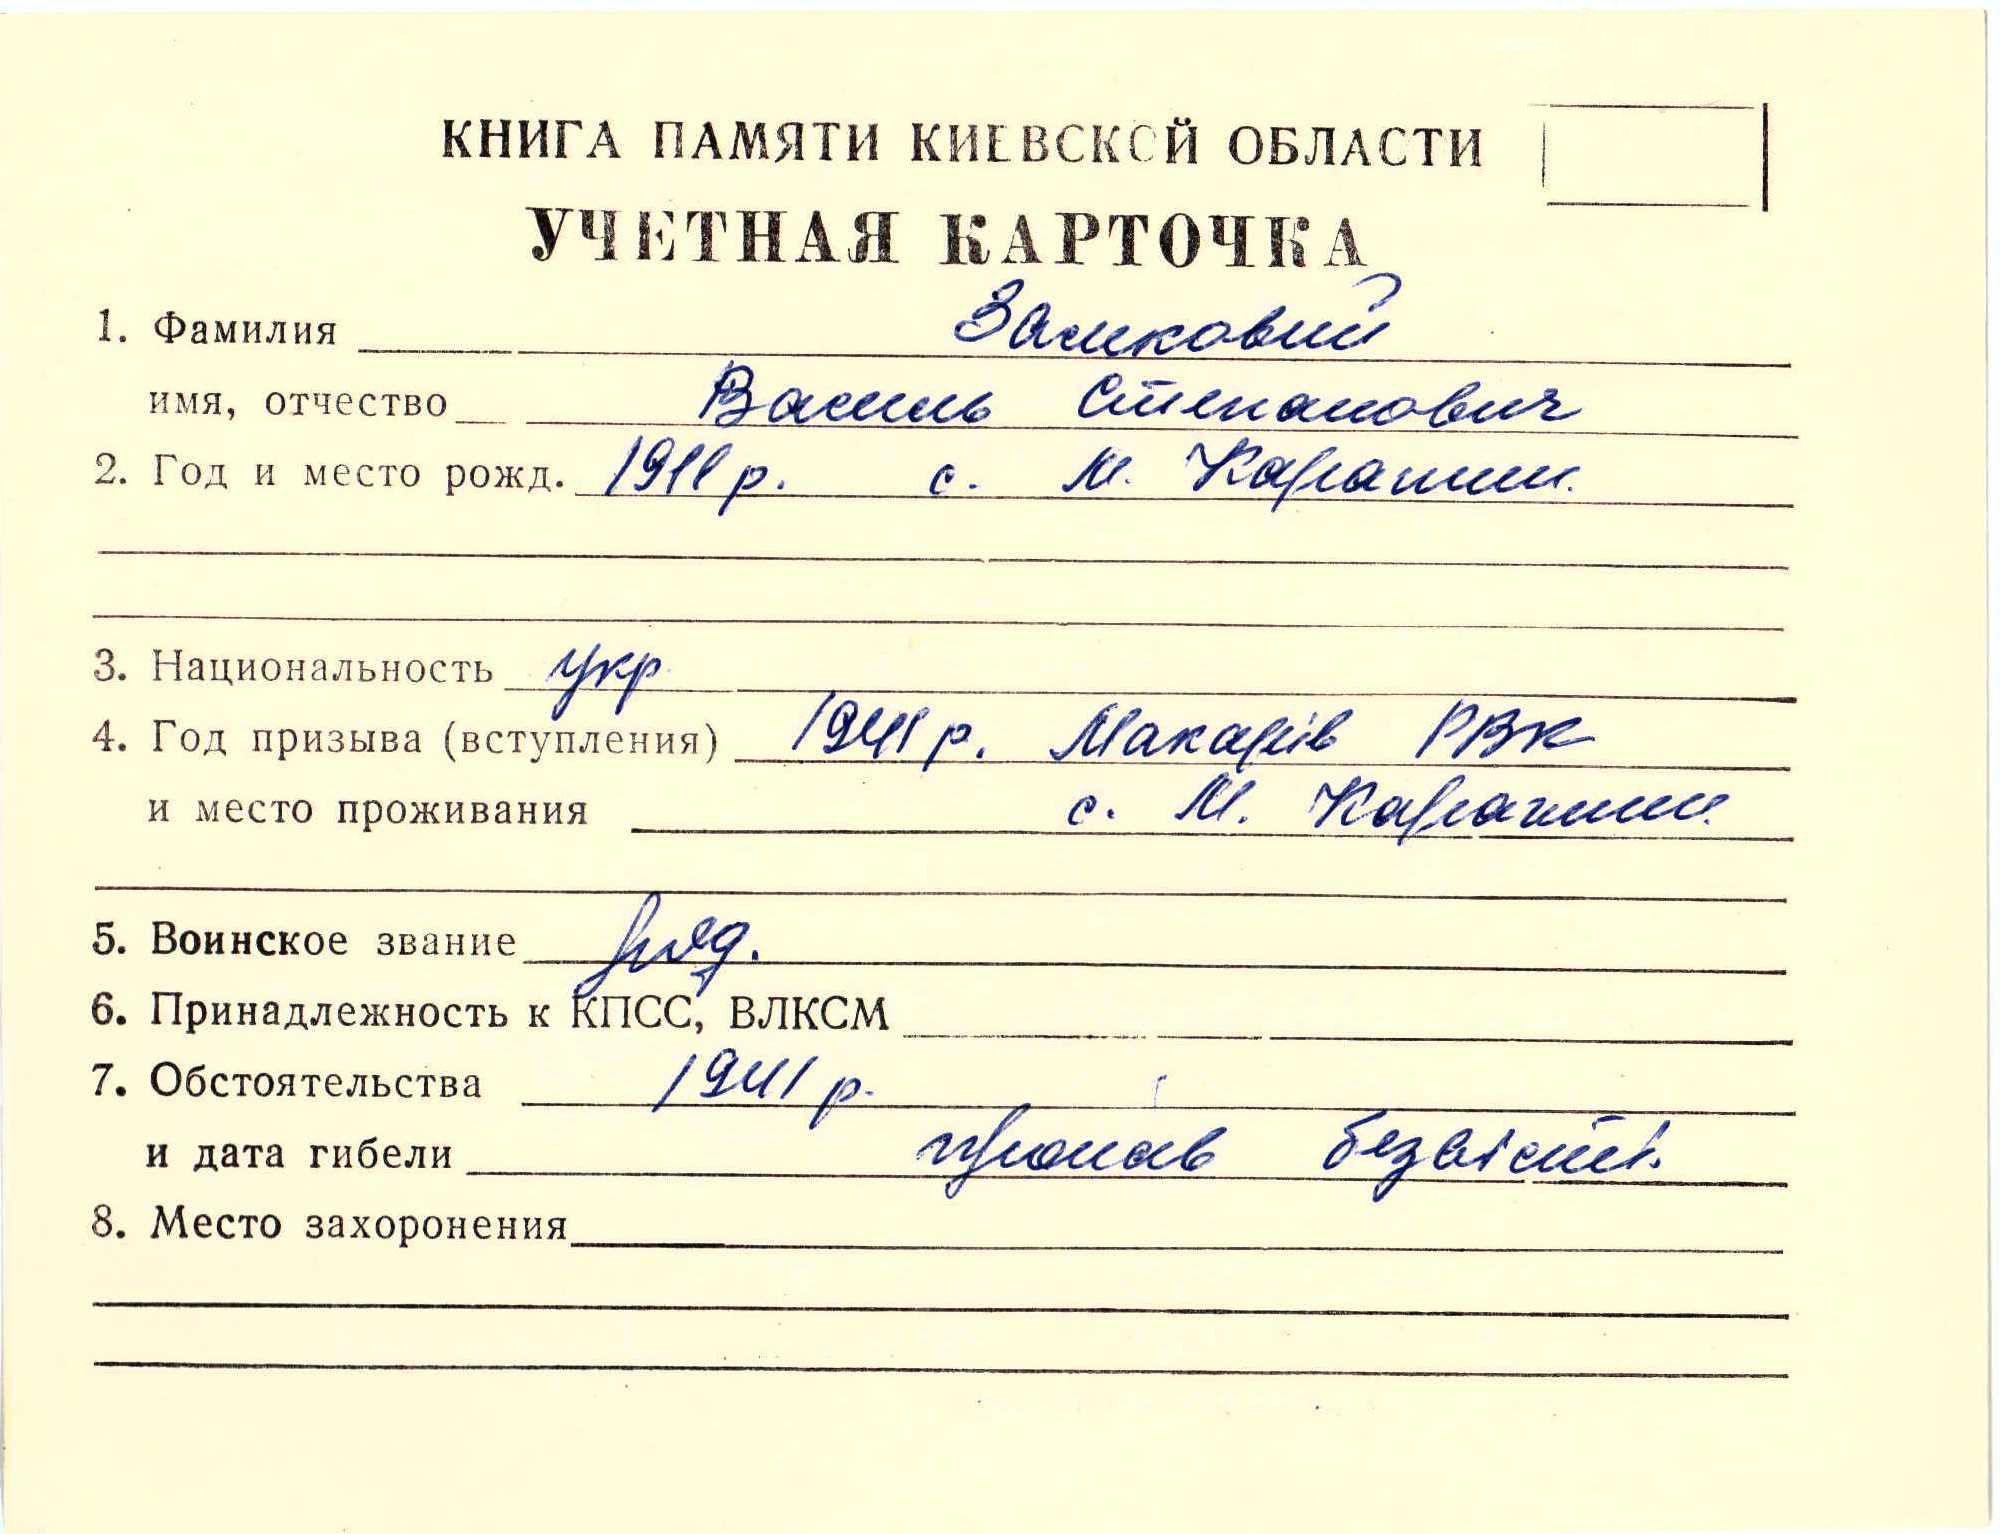 КНИГА ПАМЯТИ КИЕВСКОЙ ОБЛАСТИ
УЧЕТНАЯ КАРТОЧКА
1. Фамилия Замковий
имя, отчество Василь Степанович
2. Год и место рожд. 1911 р. с. М. Карашин.
3. Национальность укр
4. Год призыва (вступления) 1941 р. Макарів РВК
и место проживания с. М. Карашин.
5. Воинское звание ряд.
6. Принадлежность к КПСС, ВЛКСМ
7. Обстоятельства 1941 р.
и дата гибели пропав безвісти.
8. Место захоронения